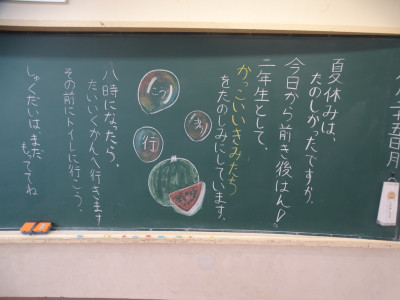 八月二十五日月
夏休みは、
たのしかったですか。
今日から前き後はん!
二年生として、
かっこいいきみたち
をたのしみにしています。
行
八時になったら、
たいいくかんへ行きます
その前にトイレに行こう。
しゅくだいは まだ
もっててね